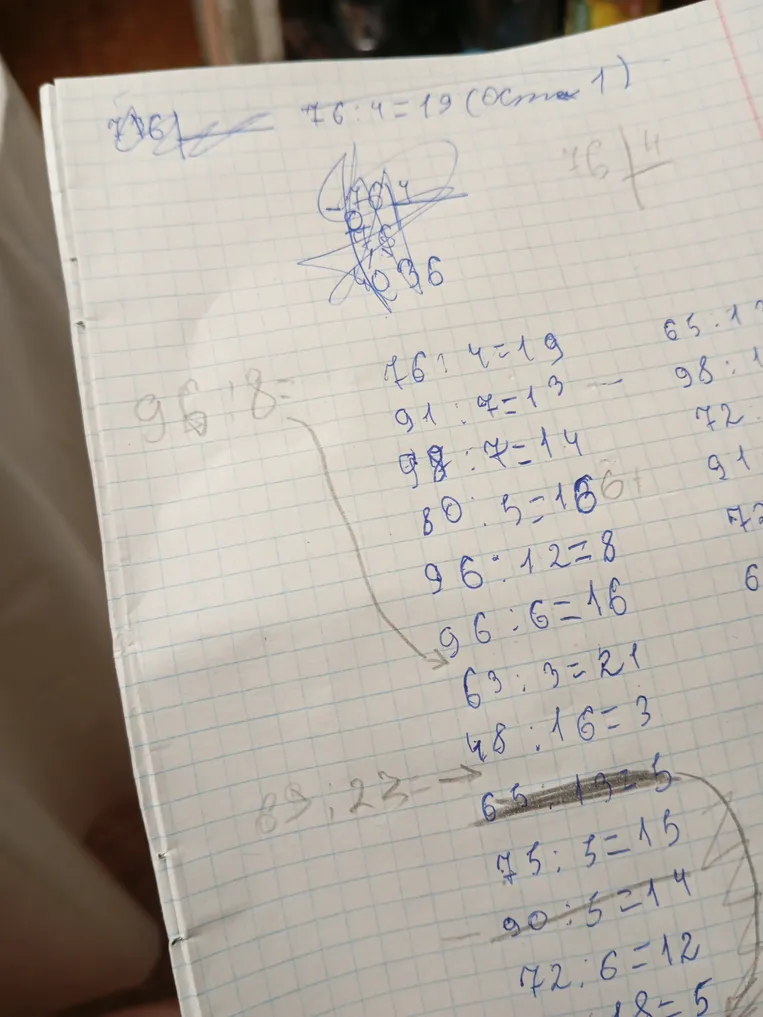 76 : 4 = 19 (ост 1)
76 4
36
96 : 8 =
76 : 4 = 19
91 : 7 = 13
98 : 7 = 14
80 : 5 = 16 6
96 : 12 = 8
96 : 6 = 16
63 : 3 = 21
48 : 16 = 3
: 23 =
65 : 13 = 5
75 : 5 = 15
90 : 5 = 14
72 : 6 = 12
18 = 5
65 : 1
98 : 1
72
91
72
6